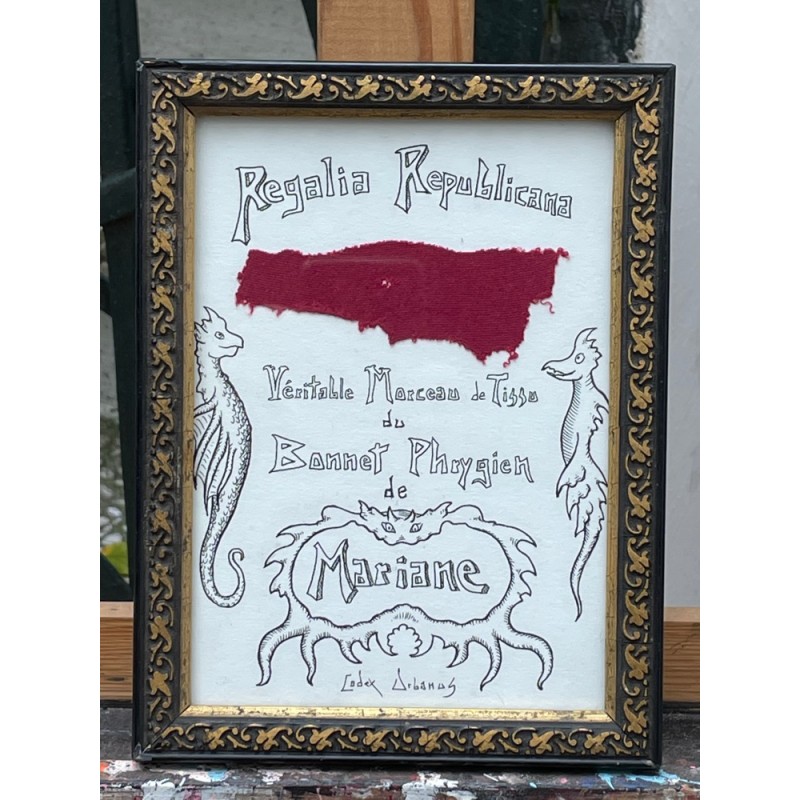 Regalia Republicana
Véritable Morceau de Tissu
du
Bonnet Phrygien
de
Mariane
Codex Urbanus